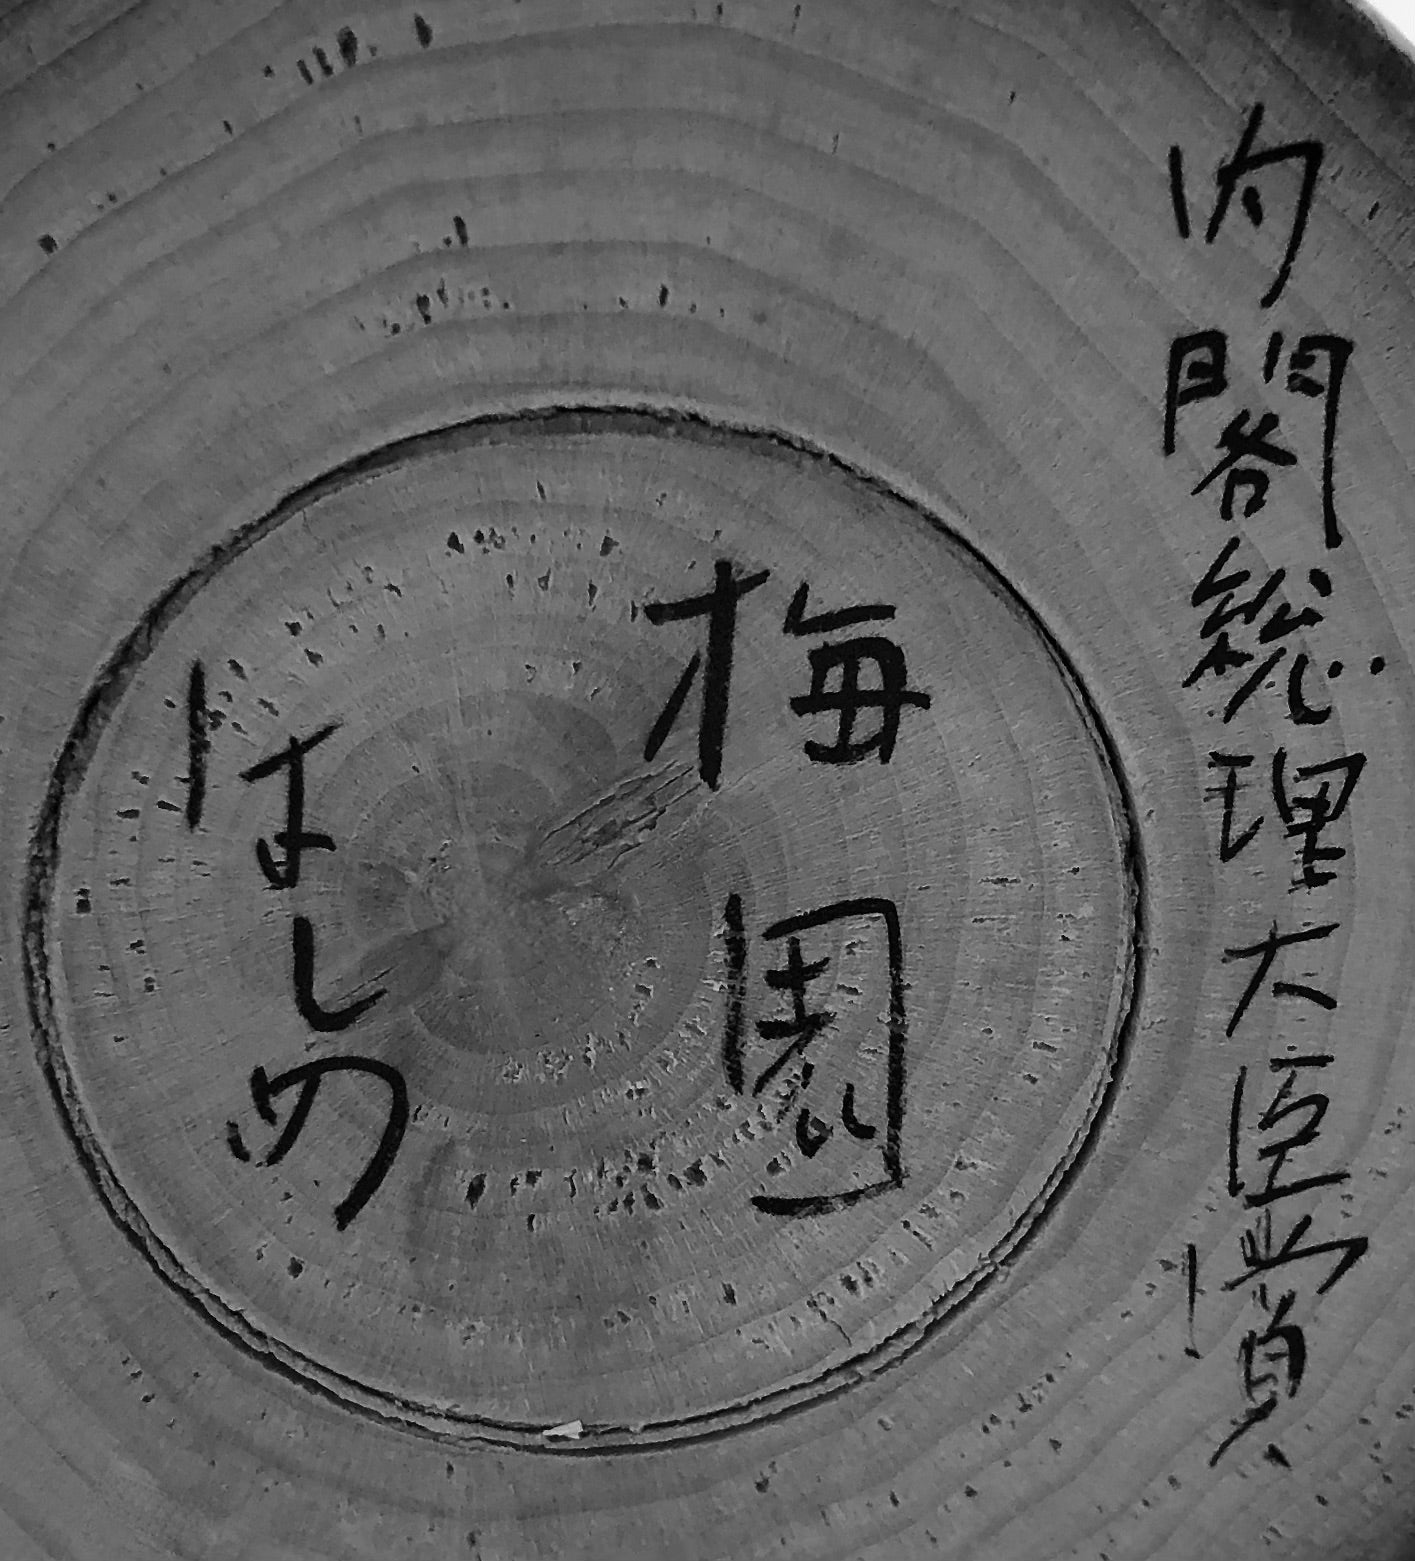 内閣総理大臣賞
梅園
はしめ